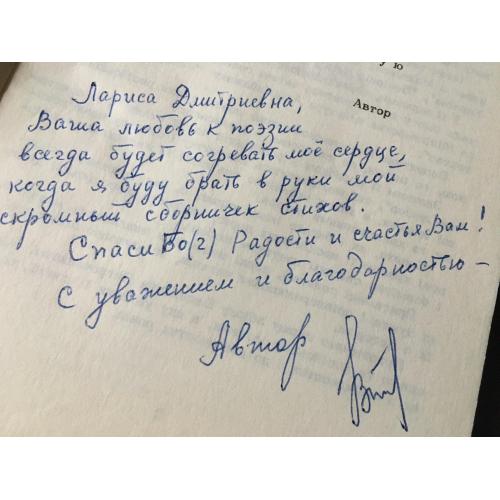 ую
Автор
Лариса Дмитриевна,
Ваша любовь к поэзии
всегда будет согревать моё сердце,
когда я буду брать в руки мой
скромный сборничек стихов.
Спаси Бо(г) Радости и счастья Вам!
С уважением и благодарностью –
Автор